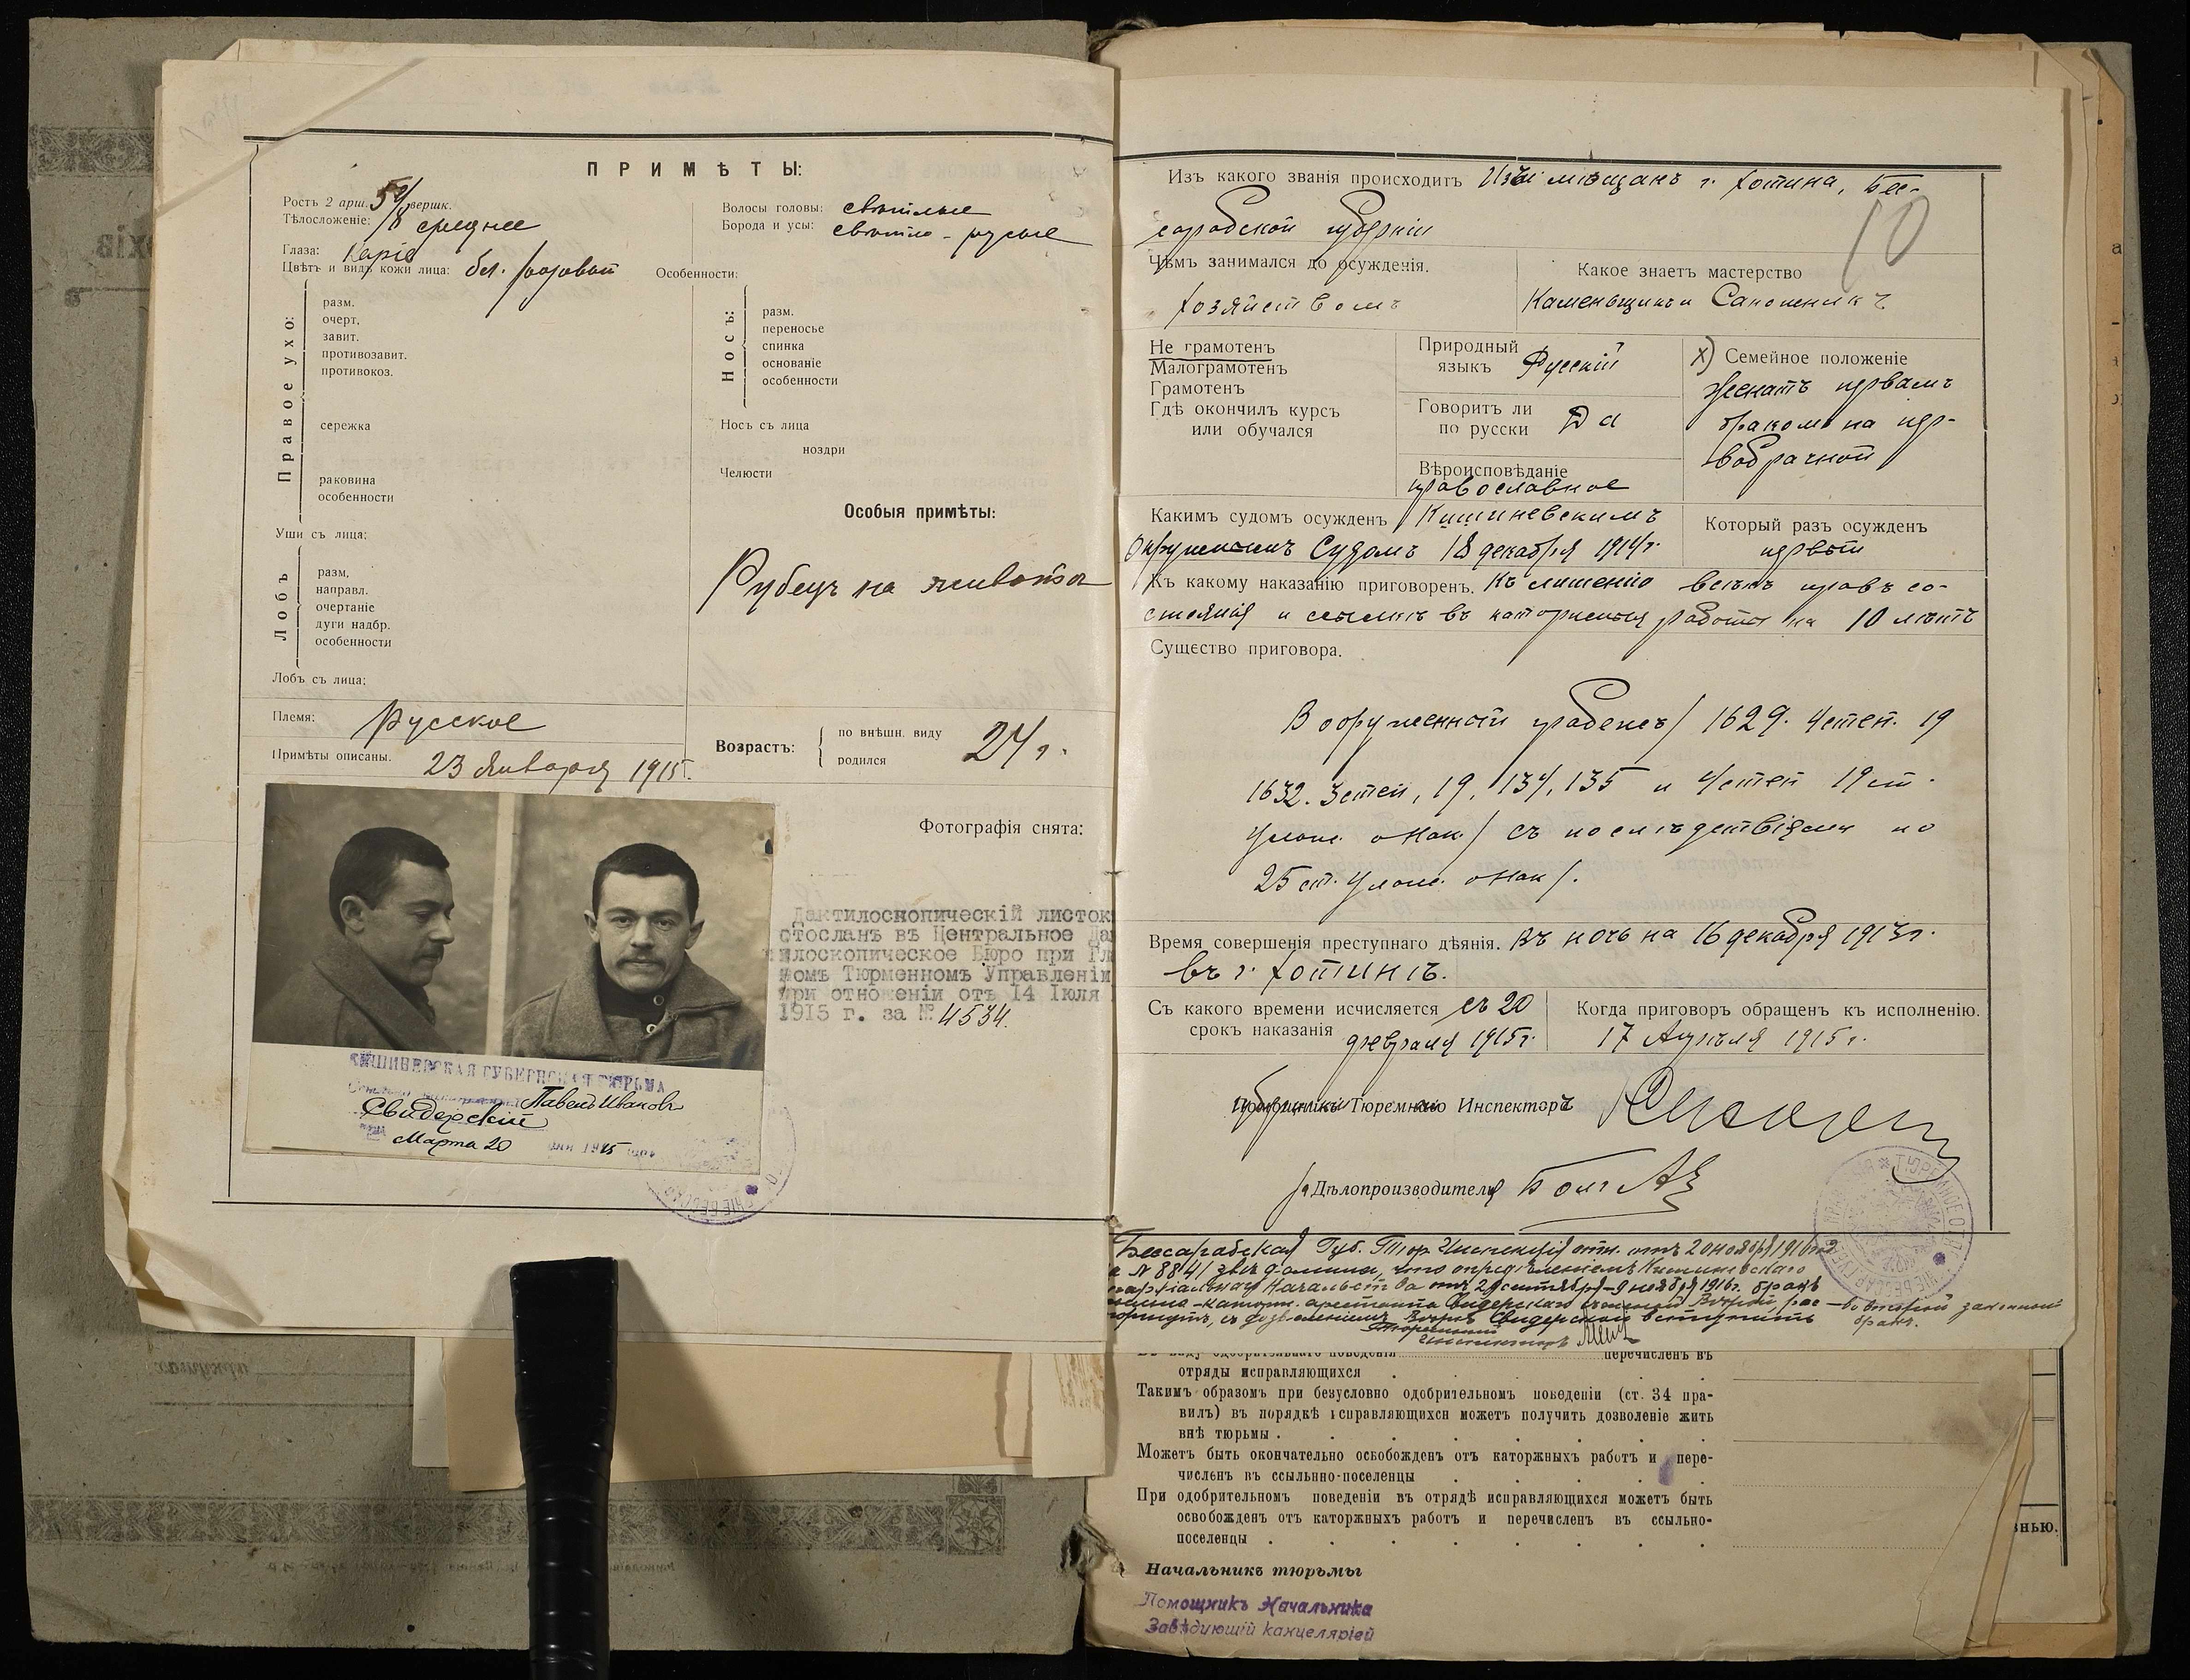 ПРИМѢТЫ:
Ростъ 2 арш. 5 4/8 вершк.
Тѣлосложеніе: среднее
Глаза: Каріе
Цвѣтъ и видъ кожи лица: бл. розовый
Волосы головы: свѣтлые
Борода и усы: свѣтло-русые
Особенности:
Правое ухо:
разм.
очерт,
завит.
противозавит.
противокоз.
сережка
раковина
особенности
Носъ:
разм.
переносье
спинка
основаніе
особенности
Носъ съ лица
ноздри
Челюсти
Уши съ лица;
Лобъ
разм,
направл.
очертаніе
дуги надбр.
особенности
Лобъ съ лица;
Особыя примѣты:
Рубецъ на животѣ
Племя: Русское
Примѣты описаны. 23 Января 1915 г.
Возрастъ:
по внѣшн. виду
родился
24 г.
Фотографія снята:
Дактилоскопическій листок
отосланъ въ Центральное Да
илоскопическое Бюро при Гл
омъ Тюрменномъ Управленіи
при отно еніи отъ 14 Іюля
1915 г. за № 4534.
КИШИНЕВСКАЯ ГУБЕРНСКАЯ ТЮРЬМА
Павелъ Ивановъ
Свидерскій
Марта 20 дня 1915 года
Изъ какого званія происходитъ Изъ мѣщанъ г. Хотина, Бес-
сарабской губерніи
10
Чѣмъ занимался до осужденія.
хозяйствомъ
Какое знаетъ мастерство
Каменьщикъ и Сапожникъ
Не грамотенъ
Малограмотенъ
Грамотенъ
Гдѣ окончилъ курсъ
или обучался
Природный
языкъ Русскій
Говоритъ ли
по русски Да
Вѣроисповѣданіе
православное
х) Семейное положеніе
женатъ первымъ
бракомъ на пер-
вобрачной
Какимъ судомъ осужденъ Кишиневскимъ
Окружнымъ Судомъ 18 декабря 1914 г.
Который разъ осужденъ
первый
Къ какому наказанію приговоренъ. Къ лишенію всѣхъ правъ со-
стоянія и ссылкѣ въ каторжныя работы на 10 лѣтъ
Существо приговора.
Вооруженный грабежъ / 1629. 4 степ. 19
1632. 3 степ, 19, 134, 135 и 4 степ 19 ст.
Улож. о Нак./ съ послѣдствіями по
25 ст. Улож. о Нак/.
Время совершенія преступнаго дѣянія. Въ ночь на 16 декабря 1913 г.
въ г. Хотинѣ.
Съ какого времени исчисляется съ 20
срокъ наказанія февраля 1915 г.
Когда приговоръ обращенъ къ исполненію.
17 Апрѣля 1915 г.
Тюремнаго Инспектора
Дѣлопроизводителя
Бессарабская Губ. Тюр. Инспекція отн. отъ 20 ноября 1916 г.
№ 8841 увѣдомила, что опредѣленіемъ Кишиневскаго
Епархіальнаго Начальства отъ 29 сентября-9 ноября 1916 г. бракъ
ссыльно-каторж. арестанта Свидерскаго съ женой Вѣрой, рас-
торгнутъ, съ дозволеніемъ Вѣрѣ Свидерской вступить
во второй законный
бракъ.
Тюремный
Инспекторъ
Въ виду одобрительнаго поведенія перечисленъ въ
отряды исправляющихся
Такимъ образомъ при безусловно одобрительномъ поведеніи (ст. 34 пра-
вилъ) въ порядкѣ исправляющихся можетъ получить дозволеніе жить
внѣ тюрьмы .
Можетъ быть окончательно освобожденъ отъ каторжныхъ работъ и пере-
численъ въ ссыльно-поселенцы
При одобрительномъ поведеніи въ отрядѣ исправляющихся можетъ быть
освобожденъ отъ каторжныхъ работъ и перечисленъ въ ссыльно-
поселенцы .
Начальникъ тюрьмы
Помощникъ Начальника
Завѣдующій канцеляріей